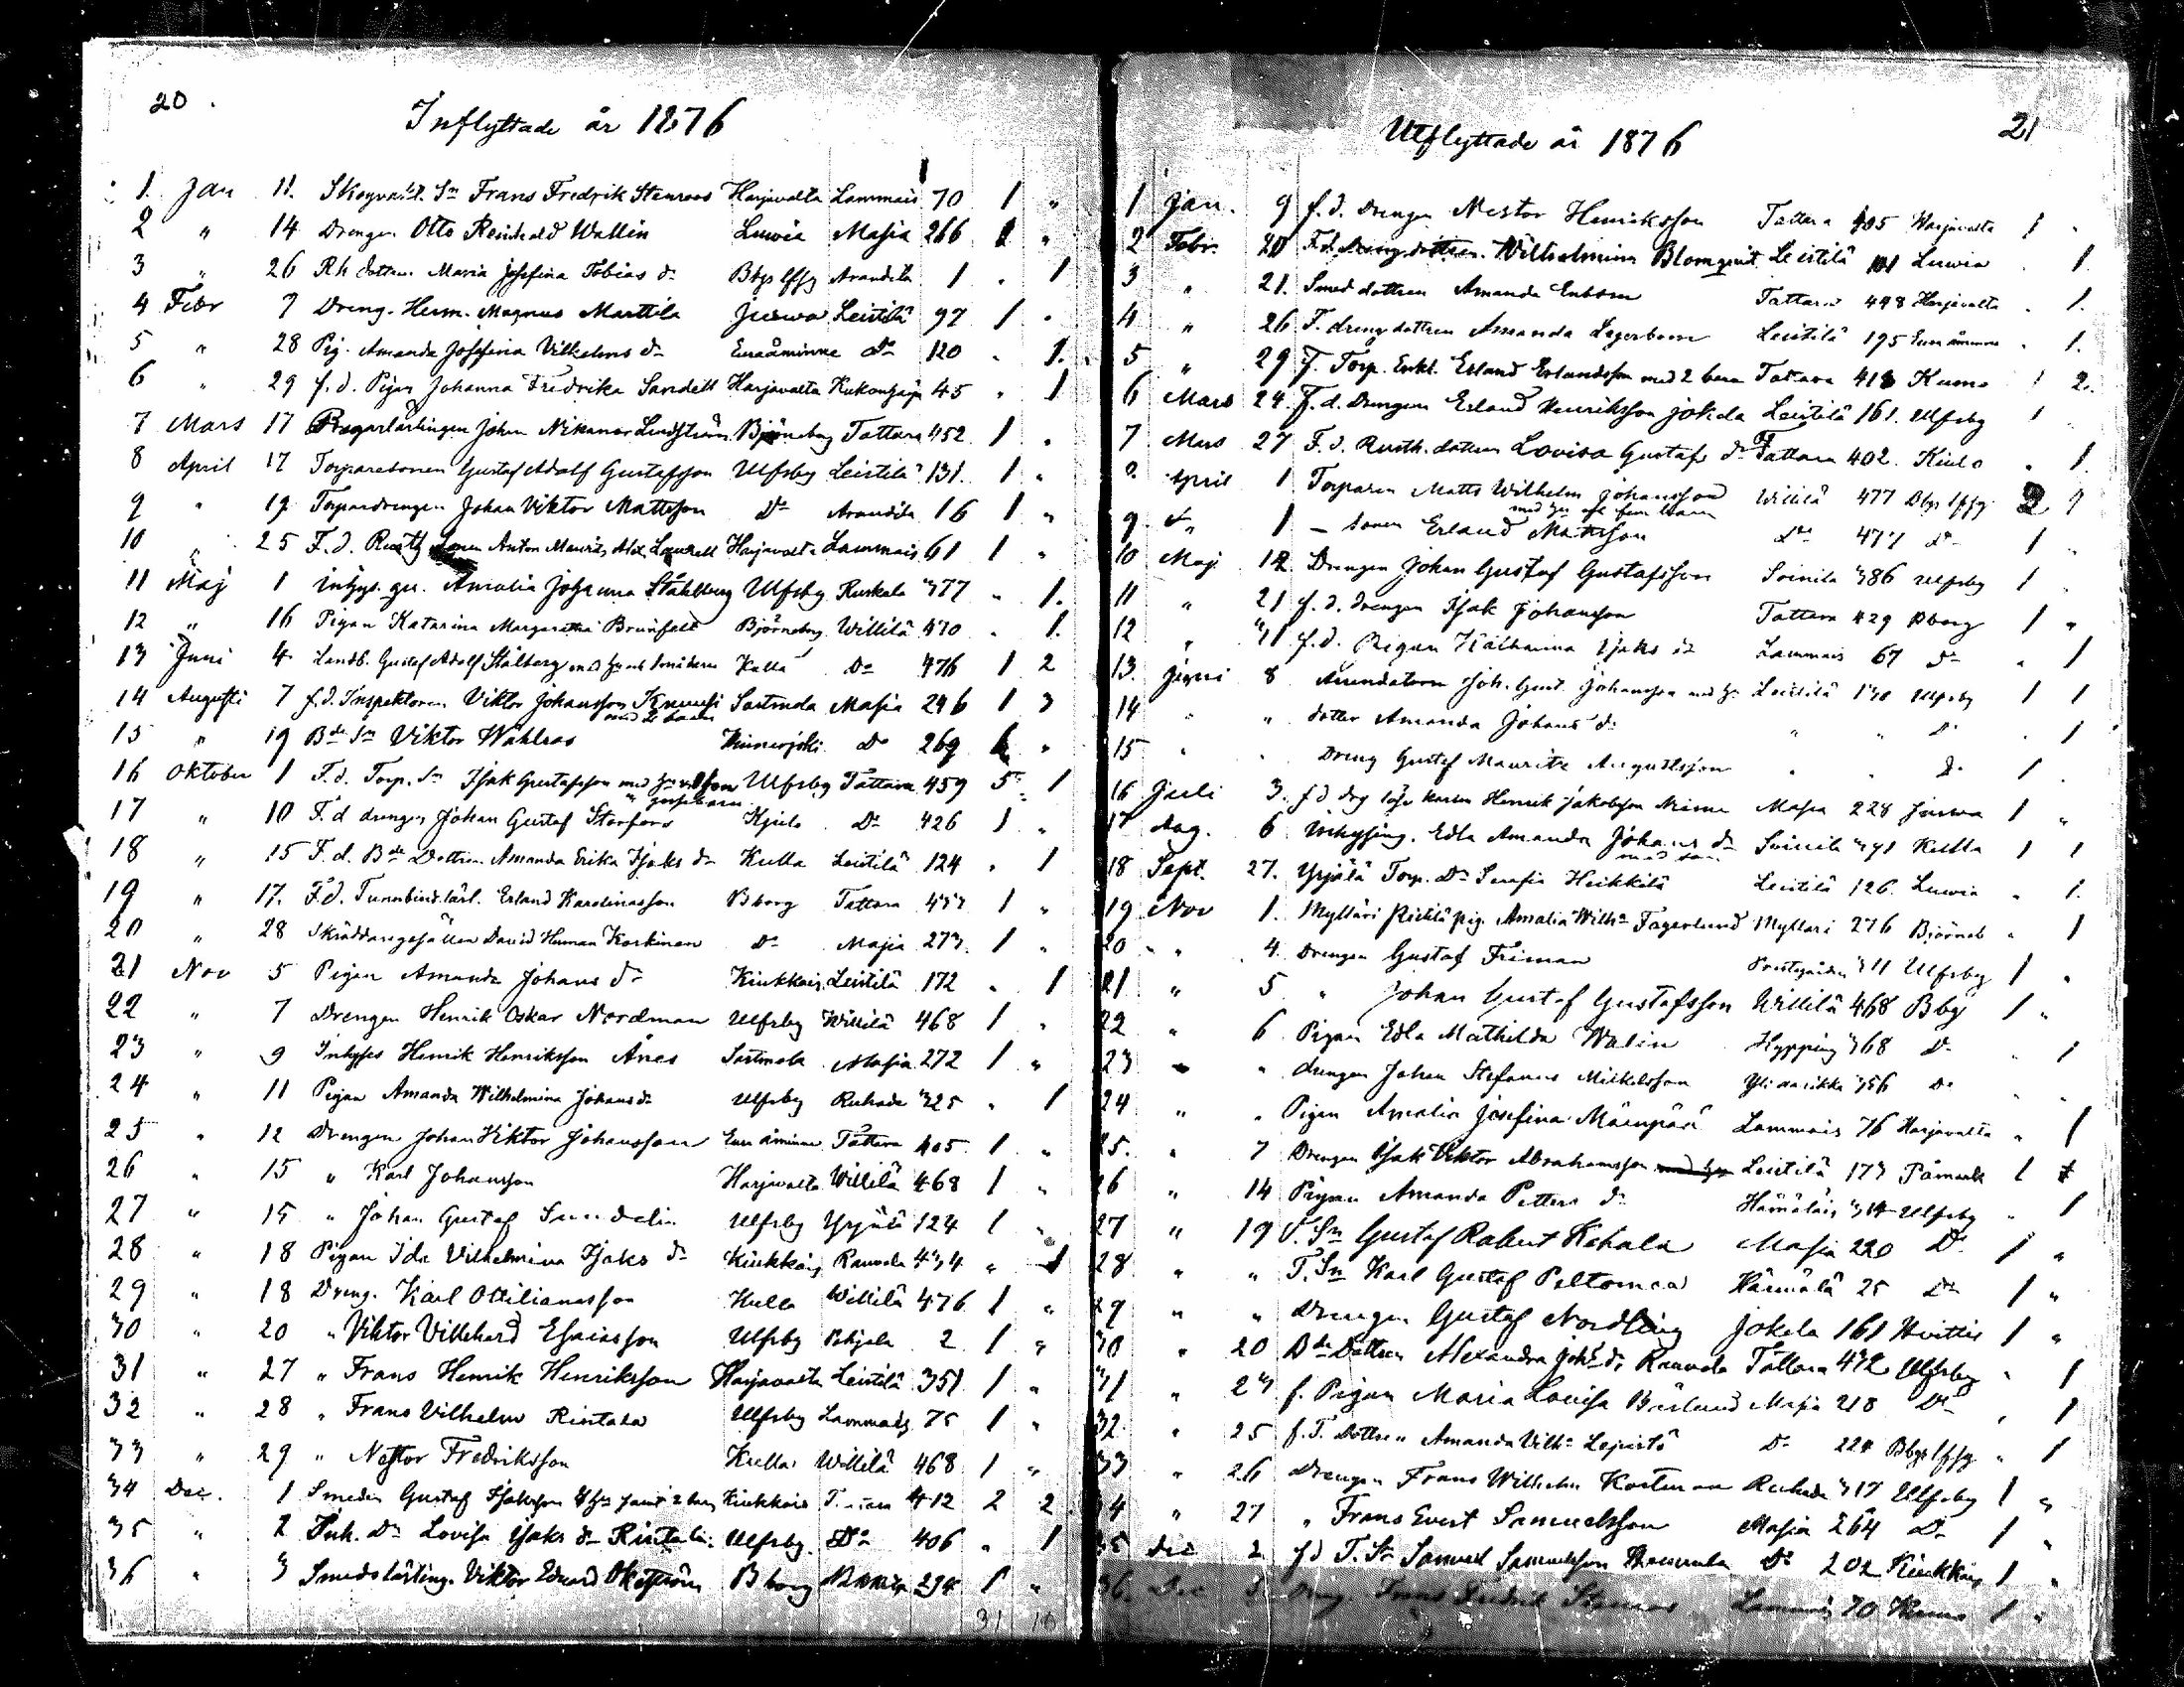 20
Inflyttade år 1876
1. Jan 11. Frans Fredrik Stenroos Harjavalta Lammais 70 1 "
2 " 14 Drengen Otto Reinhold Wallin Luvia Masia 266 1 "
3 " 26 Rh dottern Maria Josefina Tobias dr Arandila 1 " 1
4 Febr 7 Dreng. Herm. Magnus Marttila Leistilä 97 1 "
5 " 28 Pig. Amanda Josefina Vilhelms dr Euraåminne Do 120 " 1.
6 " 29 f. d. Pigan Johanna Fredrika Sandell Harjavalta 45 " 1
7 Mars 17 Johan Nikanor Lindström Björneborg Tattara 452 1 "
8 April 17 Torparesonen Gustaf Adolf Gustafsson Ulfsby Leistilä 131. 1 "
9 " 19 Torpardrengen Johan Viktor Mattsson Do Arandila 16 1 "
10 " 25 F. d. Anton Maurits Harjavalta Lammais 61 1 "
11 Maj 1 Amalia Johanna Ståhlberg Ulfsby Ruskela 377 " 1.
12 " 16 Pigan Katarina Margaretha Brunfelt Björneborg Willilä 470 " 1.
13 Juni 4 Gustaf Adolf Stålberg Kulla Do 476 1 2
14 Augusti 7 f. d. Inspektoren Viktor Johansson Knuusi Sastmola Masia 246 1 3
med 2 barn
15 " 19 Viktor Wahlroos Do 269 "
16 Oktober 1 F. d. Torp. Sn Isak Gustafsson Ulfsby Tattara 459 5 1
17 " 10 F. d drengen Johan Gustaf Storfors Kjulo Do 426 1 "
18 " 15 F. d. Dottren Amanda Erika Isaks dr Kulla Leistilä 124 " 1
19 " 17. F. d. Erland Karolinasson Bborg Tattara 1 "
20 " 28 Skräddaregesällen David Herman Korkinen Do Masia 273 1 "
21 Nov 5 Pigan Amanda Johans dr Kiukkais Leistilä 172 " 1
22 " 7 Drengen Henrik Oskar Nordman Ulfsby Willilä 468 1 "
23 " 9 Inhyses Henrik Henriksson Ånes Sastmola Masia 272 1 "
24 " 11 Pigan Amanda Wilhelmina Johansdr Ulfsby 325 " 1
25 " 12 Drengen Johan Viktor Johansson Euraåminne Tattara 405 1 "
26 " 15 " Karl Johansson Harjavalta Willilä 468 1 "
27 " 15 " Johan Gustaf Sundelin Ulfsby Yrjälä 124 1 "
28 " 18 Pigan Ida Vilhelmina Isaks dr Kiukkais 434 " 1
29 " 18 Dreng. Karl Ottilianasson Kulla Willilä 476 1 "
30 " 20 " Viktor Villehard Esaiasson Ulfsby 2 1 "
31 " 27 " Frans Henrik Henriksson Harjavalta Leistilä 351 1 "
32 " 28 " Frans Vilhelm Rintala Ulfsby Lammais 75 1 "
33 " 29 " Nestor Fredriksson Kulla Willilä 468 1 "
34 Dec. 1 Smeden Gustaf Isaksson Kiukkais 412 2 2
35 " 2 Inh. Dr Lovisa Isaks dr Rintala Ulfsby. Do 406 " 1
36 " 3 Smedslärling. Viktor Eduard Bborg 294 1 "
31
21
Utflyttade år 1876
1 Jan. 9 f. d. Drengen Nestor Henriksson Tattara 405 Harjavalta 1 "
2 Febr. 20 Wilhelmina Blomqvist Leistilä 101 Luvia " 1.
3 " 21. Smeddottren Amanda Enbom Tattara 448 Harjavalta " 1.
4 " 26 F. drengdottren Amanda Lagerbom Leistilä 195 Euraåminne " 1.
5 " 29 F. Torp. Enkl. Erland Erlandsson med 2 barn Tattara 418 Kumo 1 2.
6 Mars 24 F. d. Drengen Erland Henriksson Jokela Leistilä 161. Ulfsby 1
7 Mars 27 F. d. Rusth. dottren Lovisa Gustafs dr Tattara 402. Kiulo " 1.
April 1 Torparen Matts Wilhelm Johansson Willilä 477 2
9 1 – sonen Erland Matsson Do 477 Do 1 "
10 Maj 12 Drengen Johan Gustaf Gustafsson Soinila 386 Ulfsby 1 "
11 " 21 f. d. drengen Isak Johansson Tattara 429 Bborg 1 "
12 " f. d. Pigan Katharina Isaks dr Lammais 67 Do " 1
13. Juni 8 Arrendatorn Joh. Gust. Johansson Leistilä Ulfsby 1 1
14 " " dotter Amanda Johans dr " " Do " 1
15 " " Dreng Gustaf Mauritz Augustsson " " 1
16 Juli 3. Henrik Jakobsson Masia 228 1 "
17 Aug. 6 Inhysing. Edla Amanda Johans dr Soinila Kulla 1 1
18 Sept. 27. Yrjälä Torp. Dr Serafia Heikkilä Leistilä 126. Luvia " 1.
19 Nov 1. Mylläri pig. Amalia Wilh Fagerlund Myllari 276 Björneb " 1
20 " 4. Drengen Gustaf Friman 311 Ulfsby 1 "
21 " 5 " Johan Gustaf Gustafsson Willilä 468 Bbg 1 "
22 " 6 Pigan Edla Mathilda Walin Hypping 368 Do " 1
23 " " drengen Johan Stefanus Mickelsson 356 Do
24 " " Pigan Amalia Josefina Mäenpää Lammais 76 Harjavalta " 1
25. " 7 Drengen Isak Viktor Abrahamsson Leistilä 173 Påmark 1
26 " 14 Pigan Amanda Petters dr Ulfsby " 1
27 " 19 Gustaf Robert Kehala Masia 220 Do 1 "
28 " " T. Sn Karl Gustaf Peltomaa Hämälä 25 Do 1 "
29 " " Drengen Gustaf Nordling Jokela 161 Hvittis 1 "
30 " 20 Dottren Alexandra Tattara 472 Ulfsby " 1
31 " 23 f. Pigan Maria Lovisa Masia 218 Do " 1
32. " 25 f. T. Dottren Amanda Vilh Do 224 " 1
33 " 26 Drengen Frans Wilhelm 317 Ulfsby 1 "
34 " 27 " Frans Evert Samuelsson Masia 264 Do 1 "
35 Dec 2 f d T. Sn Samuel Samuelsson Do 202 Kiukkais 1 "
36. Dec Dreng. Frans Fredrik Stenroos Lammais 70 Kumo 1 "